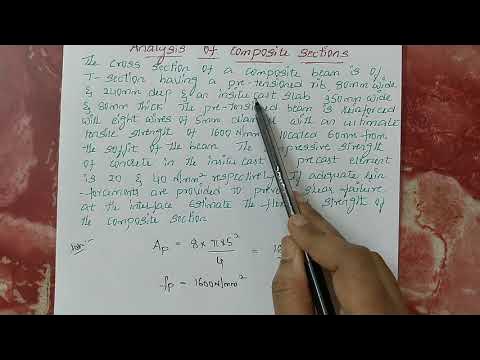 Analysis of Composite sections
The cross section of a composite beam is of
T-section having a pre-tensioned rib, 80mm wide
& 240mm deep & an insitu cast slab 350mm wide
& 80mm thick. The pre-tensioned beam is reinforced
with eight wires of 5mm with an ultimate
tensile strength of 1600 N/mm² located 60mm from
the soffit of the beam. The compressive strength
of concrete in the insitu cast precast element
is 20 & 40 N/mm² respectively. If adequate rein
-forcements are provided to shear failure
at the interface Estimate the strength of
the composite section
Ap = 8 x π x 5² / 4 =
fp = 1600 N/mm²